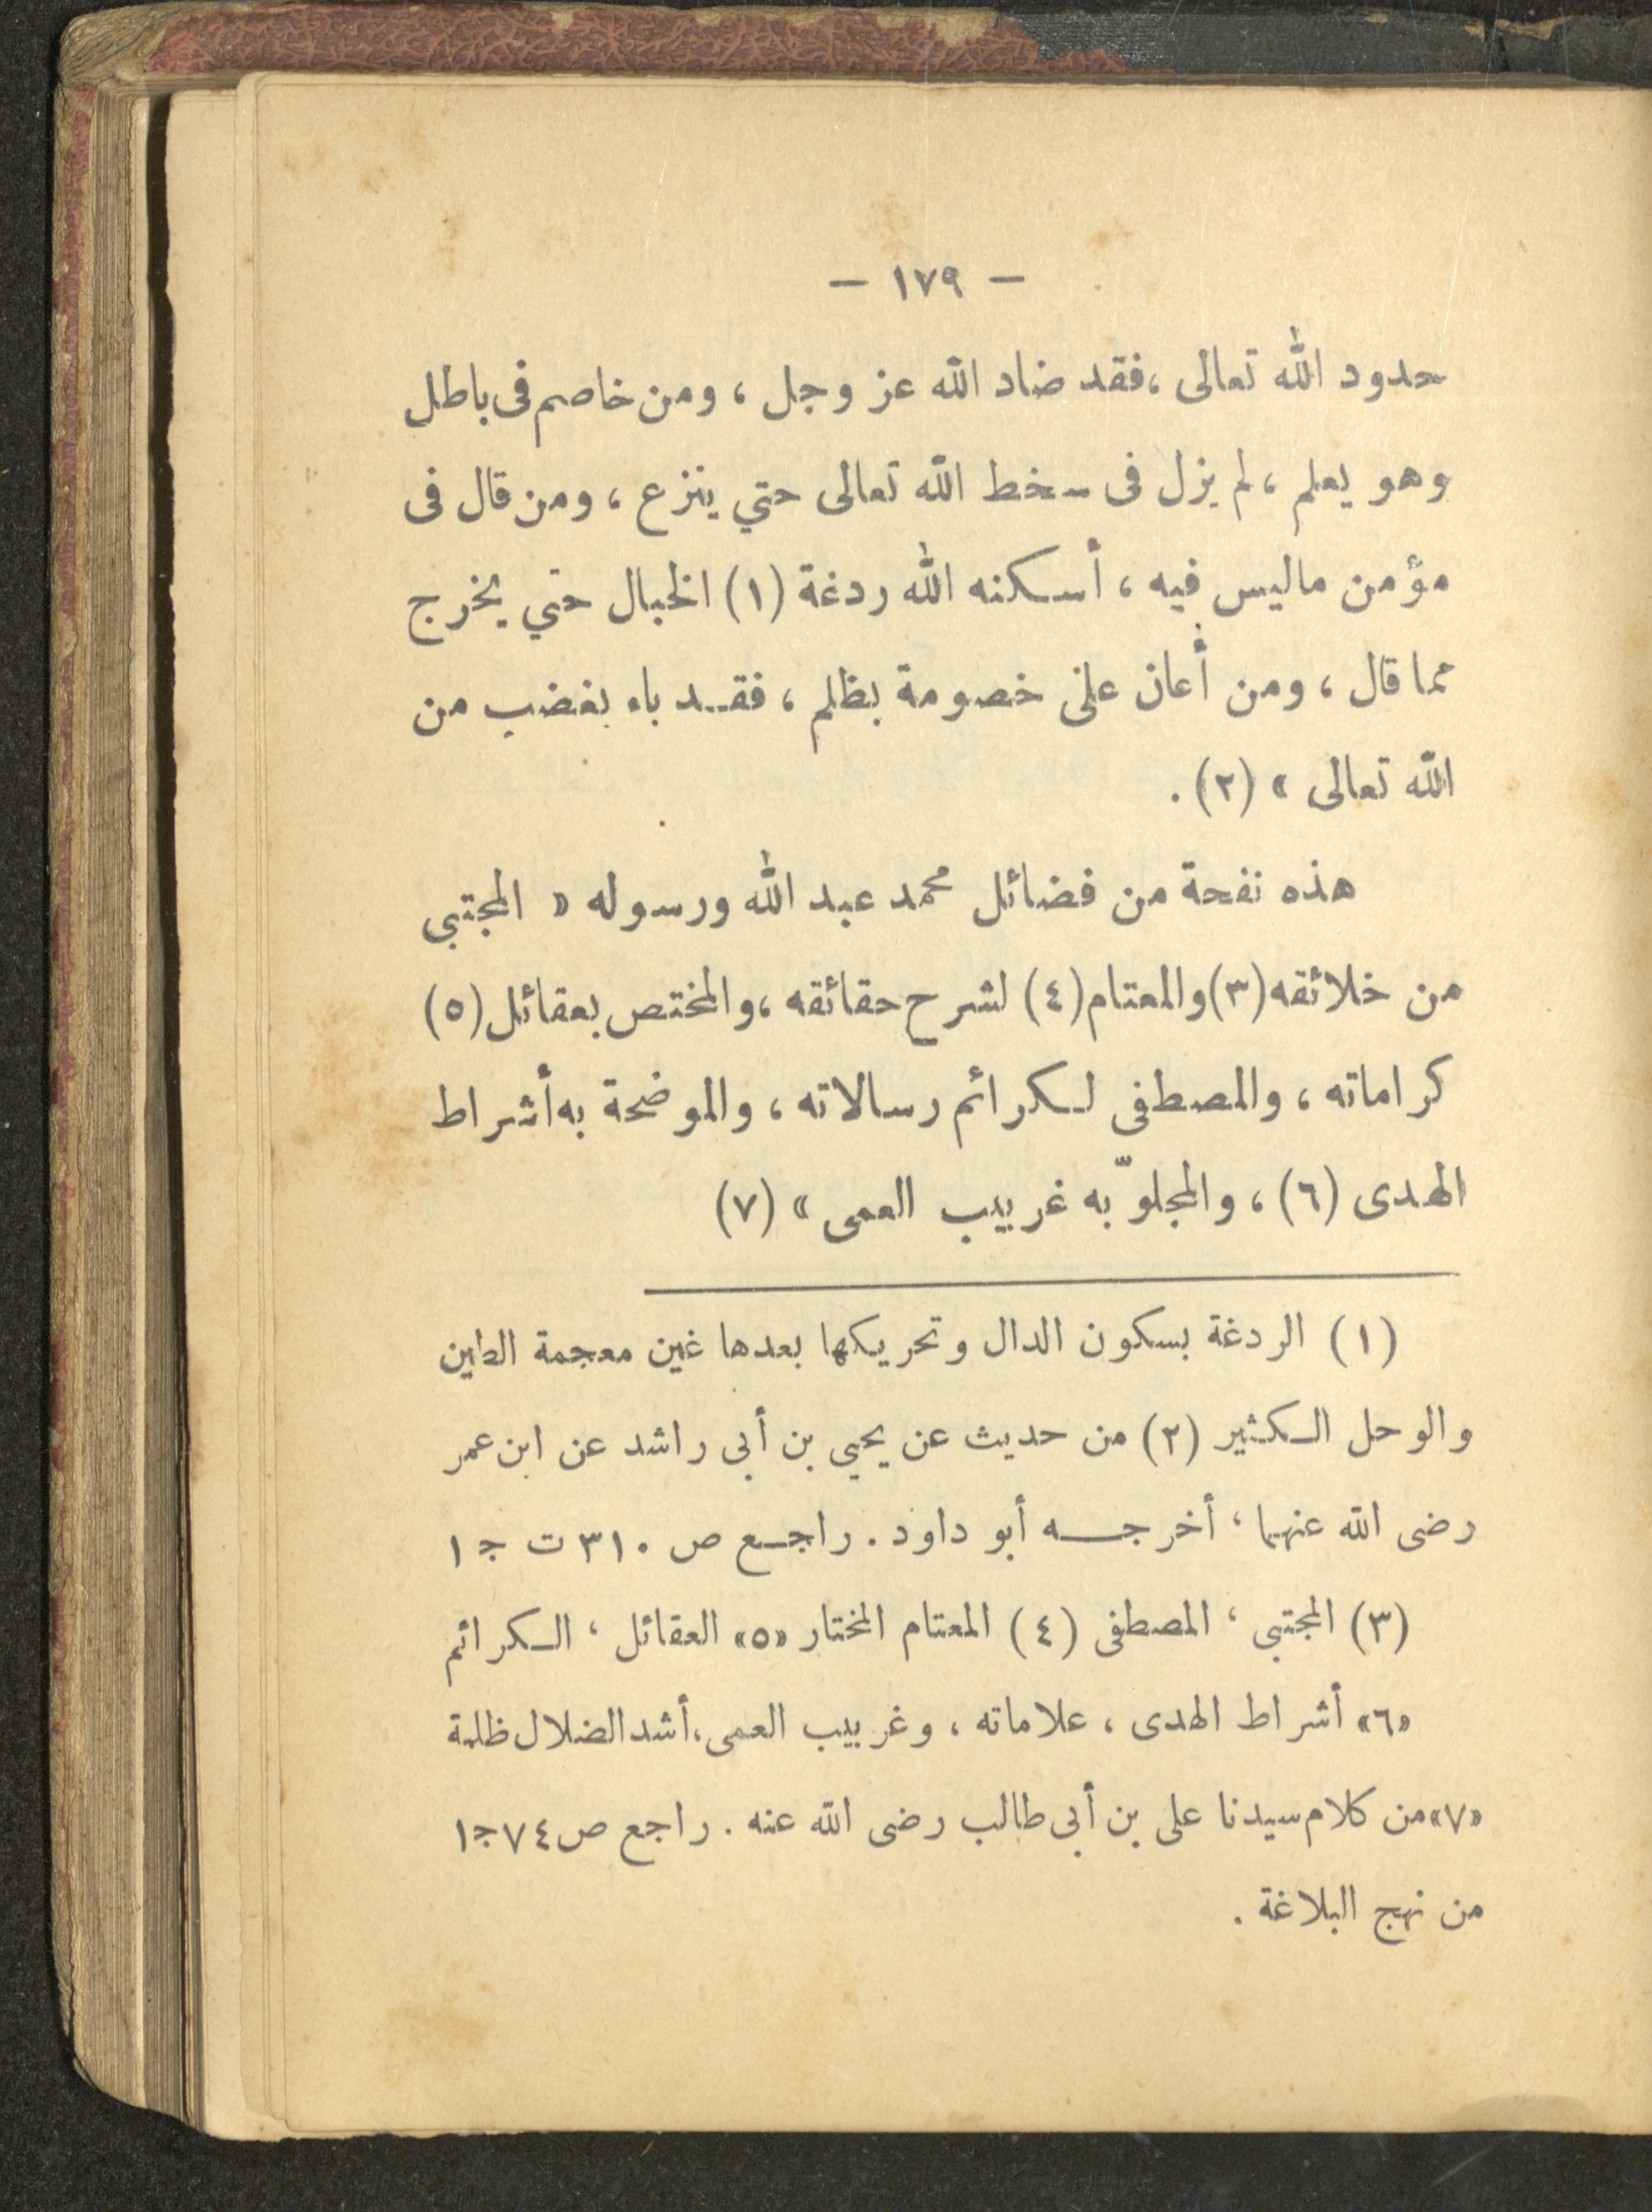 — ١٧٩ —
حدود الله تعالى ، فقد ضاد الله عز وجل ، ومن خاصم فى باطل
وهو يعلم ، لم يزل فى سخط الله تعالى حتي ينزع ، ومن قال فى
مؤمن ماليس فيه ، أسكنه الله ردغة (١) الخبال حتي يخرج
مما قال ، ومن أعان على خصومة بظلم ، فقد باء بغضب من
الله تعالى » (٢) .
هذه نفحة من فضائل محمد عبد الله ورسوله « المجتبي
من خلائقه (٣) والمعتام (٤) لشرح حقائقه ، والمختص بعقائل (٥)
كراماته ، والمصطفى لكرائم رسالاته ، والموضحة به أشراط
الهدى (٦) ، والمجلوّ به غربيب العمى » (٧)
(١) الردغة بسكون الدال وتحريكها بعدها غين معجمة الطين
والوحل الكثير (٢) من حديث عن يحيي بن أبى راشد عن ابن عمر
رضى الله عنهما ، أخرجه أبو داود . راجع ص ٣١٠ ت ج ١
(٣) المجتبى ، المصطفى (٤) المعتام المختار «٥» العقائل ، الكرائم
«٦» أشراط الهدى ، علاماته ، وغربيب العمى ، أشد الضلال ظلمة
«٧» من كلام سيدنا على بن أبى طالب رضى الله عنه . راجع ص ٧٤ ج ١
من نهج البلاغة .